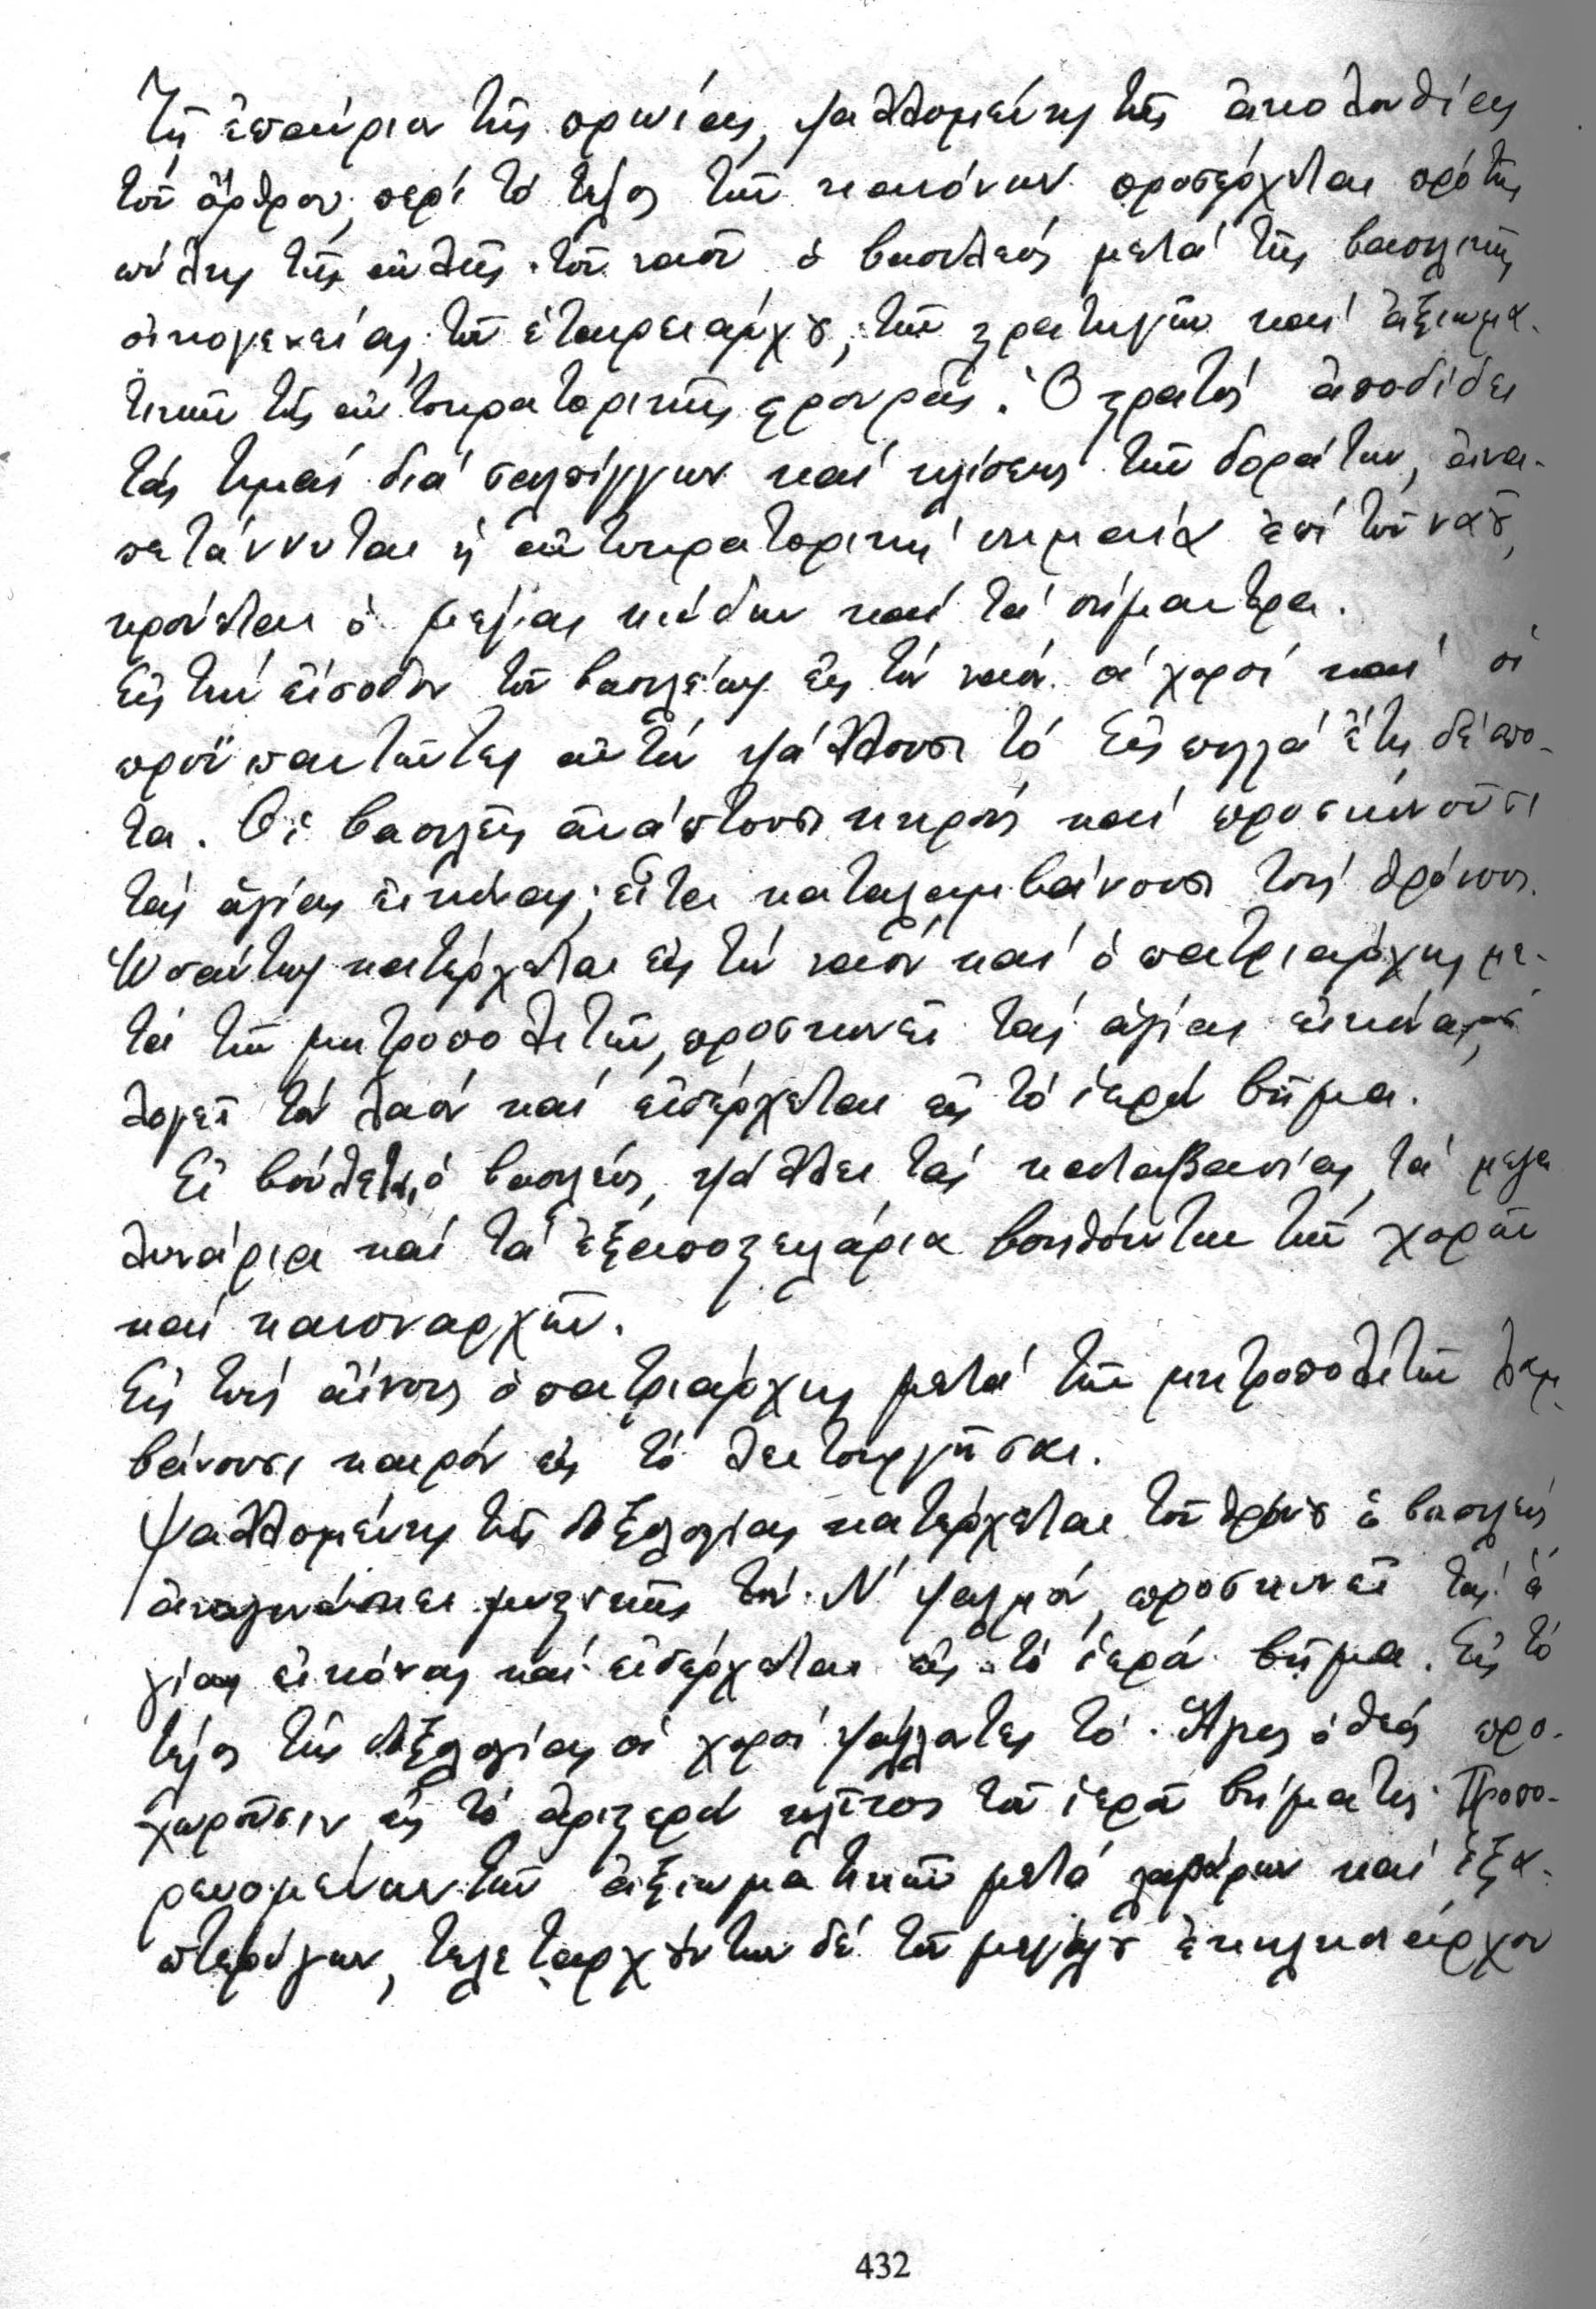 Τῇ ἐπαύριον τῆς πρωίας, ψαλλομένης τῆς ἀκολουθίας
τοῦ ὄρθρου, περί τό τέλος τῶν κανόνων προσέρχεται πρό τῆς
πύλης τῆς αὐλῆς τοῦ ναοῦ ὁ βασιλεύς μετά τῆς βασιλικῆς
οἰκογενείας, τοῦ ἑταιρειάρχου, τῶν στρατηγῶν καί ἀξιωμα-
τικῶν τῆς αὐτοκρατορικῆς φρουρᾶς. Ὁ στρατός ἀποδίδει
τάς τιμάς διά σαλπίγγων καί κλίσεως τῶν δοράτων, ἀνα-
πετάννυται ἡ αὐτοκρατορική σημαία ἐπί τοῦ ναοῦ,
κρούεται ὁ μέγας κώδων καί τά σήμαντρα.
Εἰς τήν εἴσοδον τοῦ βασιλέως εἰς τόν ναόν οἱ χοροί καί οἱ
προϋπαντῶντες αὐτόν ψάλλουσι τό Εἰς πολλά ἔτη δέσπο-
τα. Οἱ βασιλεῖς ἀνάπτουσι κηρούς καί προσκυνοῦσι
τάς ἁγίας εἰκόνας, εἶτα καταλαμβάνουσι τούς θρόνους.
Ὡσαύτως κατέρχεται εἰς τόν ναόν καί ὁ πατριάρχης με-
τά τῶν μητροπολιτῶν, προσκυνεῖ τάς ἁγίας εἰκόνας,
λογεῖ τόν λαόν καί εἰσέρχεται εἰς τό ἱερόν βῆμα.
Εἰ βούλεται ὁ βασιλεύς, ψάλλει τάς καταβασίας, τά μεγα
λυνάρια καί τά ἐξαποστειλάρια βοηθούντων τῶν χορῶν
καί κανοναρχῶν.
Εἰς τούς αἴνους ὁ πατριάρχης μετά τῶν μητροπολιτῶν λαμ-
βάνουσι καιρόν εἰς τό λειτουργῆσαι.
Ψαλλομένης τῆς δοξολογίας κατέρχεται τοῦ θρόνου ὁ βασιλεύς
ἀναγινώσκει μυστικῶς τόν Ν΄ ψαλμόν, προσκυνεῖ τάς ἁ
γίας εἰκόνας καί εἰσέρχεται εἰς τό ἱερόν βῆμα. Εἰς τό
τέλος τῆς δοξολογίας οἱ χοροί ψάλλοντες τό Ἅγιος ὁ Θεός προ-
χωροῦσιν εἰς τό ἀριστερόν κλῖτος τοῦ ἱεροῦ βήματος. Προπο-
ρευομένων τῶν ἀξιωματικῶν μετά λαβάρων καί ἑξα-
πτερύγων, τελεταρχούντων δέ τοῦ μεγάλου ἐκκλησιάρχου
432